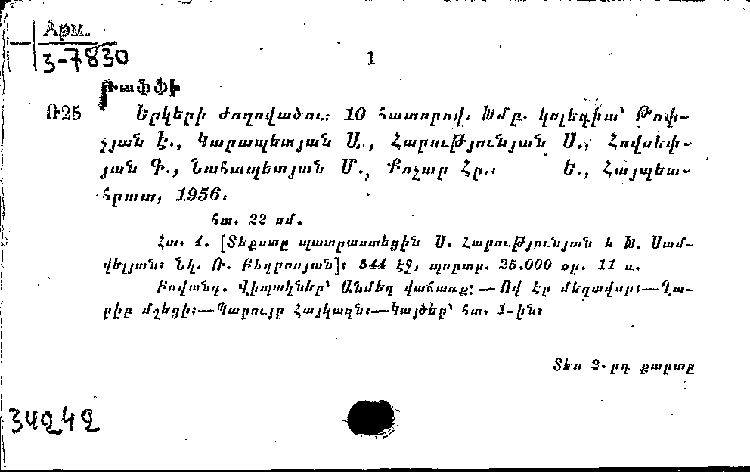 Арм.
3-7830
1
Րաֆֆի
Ռ25 Երկերի ժողովածու: 10 հատորով. Խմբ. կոլեգիա՝ Թոփ-
չյան Է., Կարապետյան Ս., Հարությունյան Ս., Հովսեփ-
յան Գ., Նահապետյան Մ., Քոչար Հր.: Ե., Հայպետ-
հրատ, 1956:
հտ. 22 սմ.
Հտ. 1. [Տեքստը պատրաստեցին Ս. Հարությունյան և Խ. Սամ-
վելյան: Նկ. Ռ. Բեդրոսյան]: 544 էջ, պորտր. 25.000 օր. 11 ռ.
Բովանդ. Վիպակներ՝ Անմեղ վաճառք:—Ով էր մեղավոր:—Ղա-
րիբ մշեցի:—Պարույր Հայկազն:—Կայծեր՝ հտ. 1-ին:
Տես 2-րդ քարտը
34242